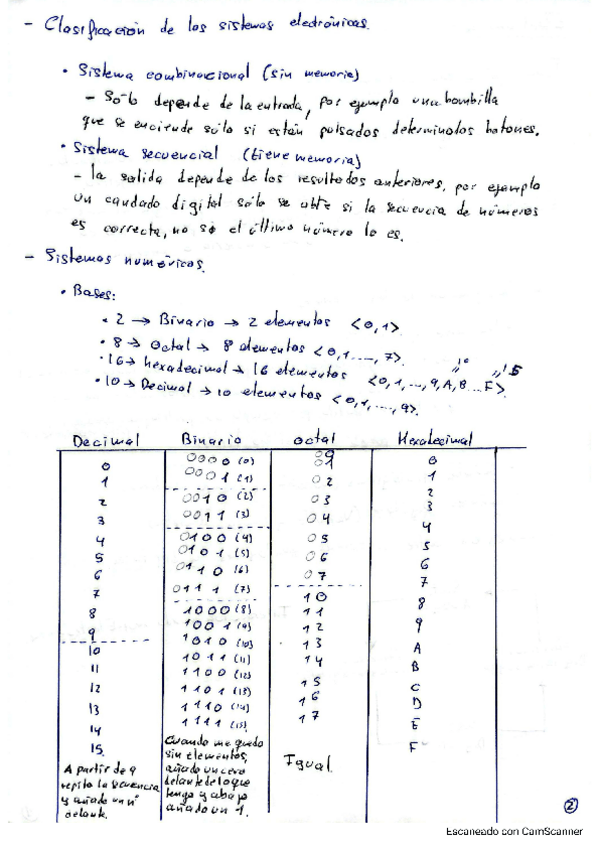 - Clasificación de los sistemas electrónicos.
• Sistema combinacional (sin memoria)
- Sólo depende de la entrada, por ejemplo una bombilla
que se enciende sólo si están pulsados determinados botones.
• Sistema secuencial (tiene memoria)
- la salida depende de los resultados anteriores, por ejemplo
un candado digital sólo se abre si la secuencia de números
es correcta, no si el último número lo es.
- Sistemas numéricos.
• Bases:
• 2 → Binario → 2 elementos <0,1>
• 8 → Octal → 8 elementos <0,1...,7>
• 16 → hexadecimal → 16 elementos <0,1,...,9,A,B...F>
"10 "15
• 10 → Decimal → 10 elementos <0,1,...,9>
Decimal Binario Octal Hexadecimal
0 0000 (0) 00 0
1 0001 (1) 01 1
2 0010 (2) 02 2
3 0011 (3) 03 3
4 0100 (4) 04 4
5 0101 (5) 05 5
6 0110 (6) 06 6
7 0111 (7) 07 7
8 1000 (8) 10 8
9 1001 (9) 11 9
10 1010 (10) 12 A
11 1011 (11) 13 B
12 1100 (12) 14 C
13 1101 (13) 15 D
14 1110 (14) 16 E
15 1111 (15) 17 F
A partir de 9
repito la secuencia
y añado un nº
delante.
Cuando me quedo
sin elementos,
añado un cero
delante de lo que
tengo y abajo
añado un 1.
Igual.
2
Escaneado con CamScanner